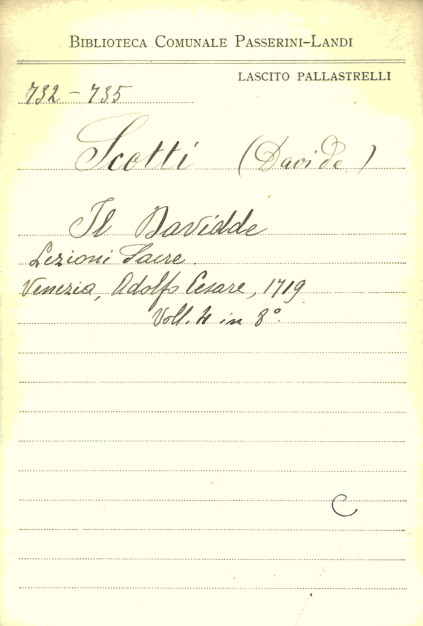 BIBLIOTECA COMUNALE PASSERINI-LANDI
LASCITO PALLASTRELLI
732 - 735
Scotti (Davide)
Il Davidde
Lezioni Sacre
Venezia, Adolfo Cesare, 1719
Voll. 4 in 8°.
C